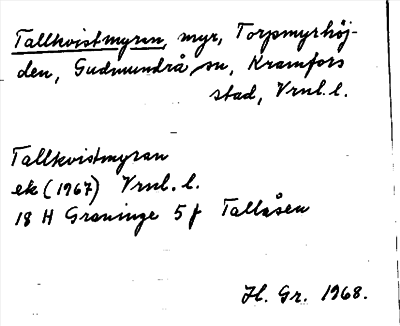 Tallkvistmyran, myr, Torpmyrhöj-
den, Gudmundrå sn, Kramfors
stad, Vrnl. l.
Tallkvistmyran
ek (1967) Vrnl. l.
18 H Graninge 5 f Tallåsen
H. Gr. 1968.